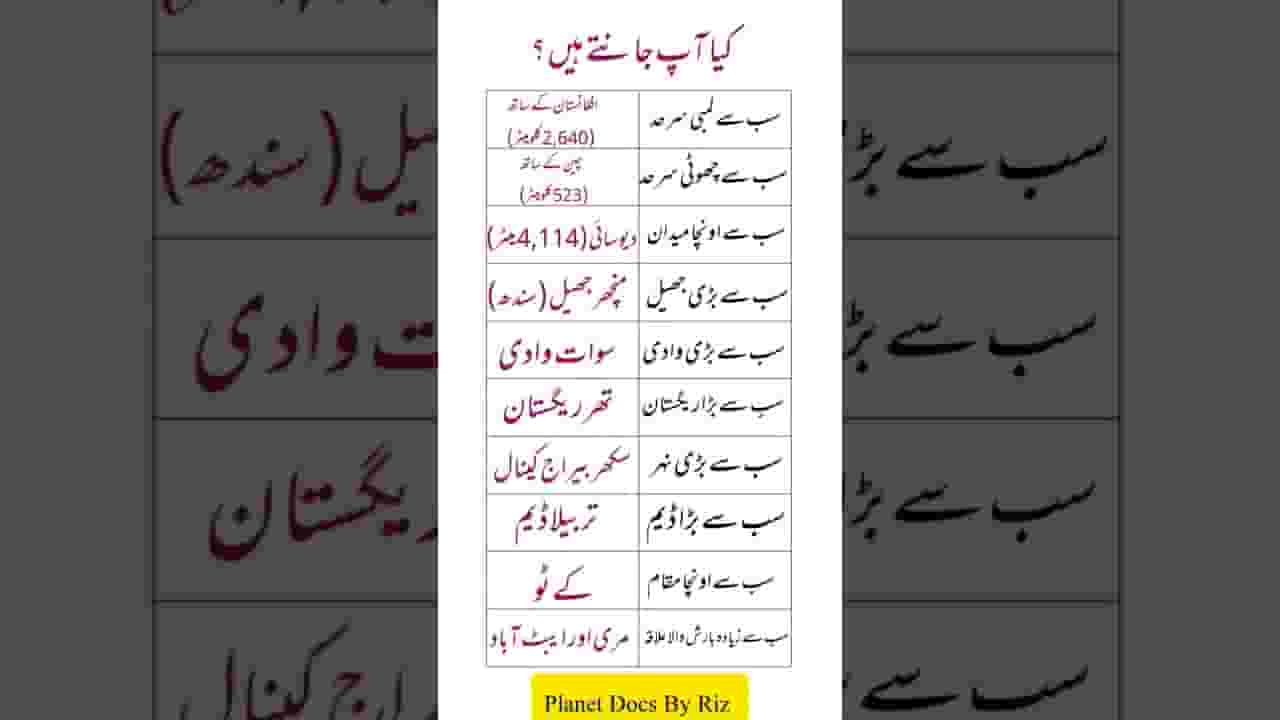 کیا آپ جانتے ہیں؟
سب سے لمبی سرحد
افغانستان کے ساتھ
(2,640 کلومیٹر)
سب سے چھوٹی سرحد
چین کے ساتھ
(523 کلومیٹر)
سب سے اونچا میدان دیوسائی (4,114 میٹر)
سب سے بڑی جھیل منچھر جھیل (سندھ)
سب سے بڑی وادی سوات وادی
سب سے بڑا ریگستان تھر ریگستان
سب سے بڑی نہر سکھر بیراج کینال
سب سے بڑا ڈیم تربیلا ڈیم
سب سے اونچا مقام کے ٹو
سب سے زیادہ بارش والا علاقہ مری اور ایبٹ آباد
Planet Docs By Riz